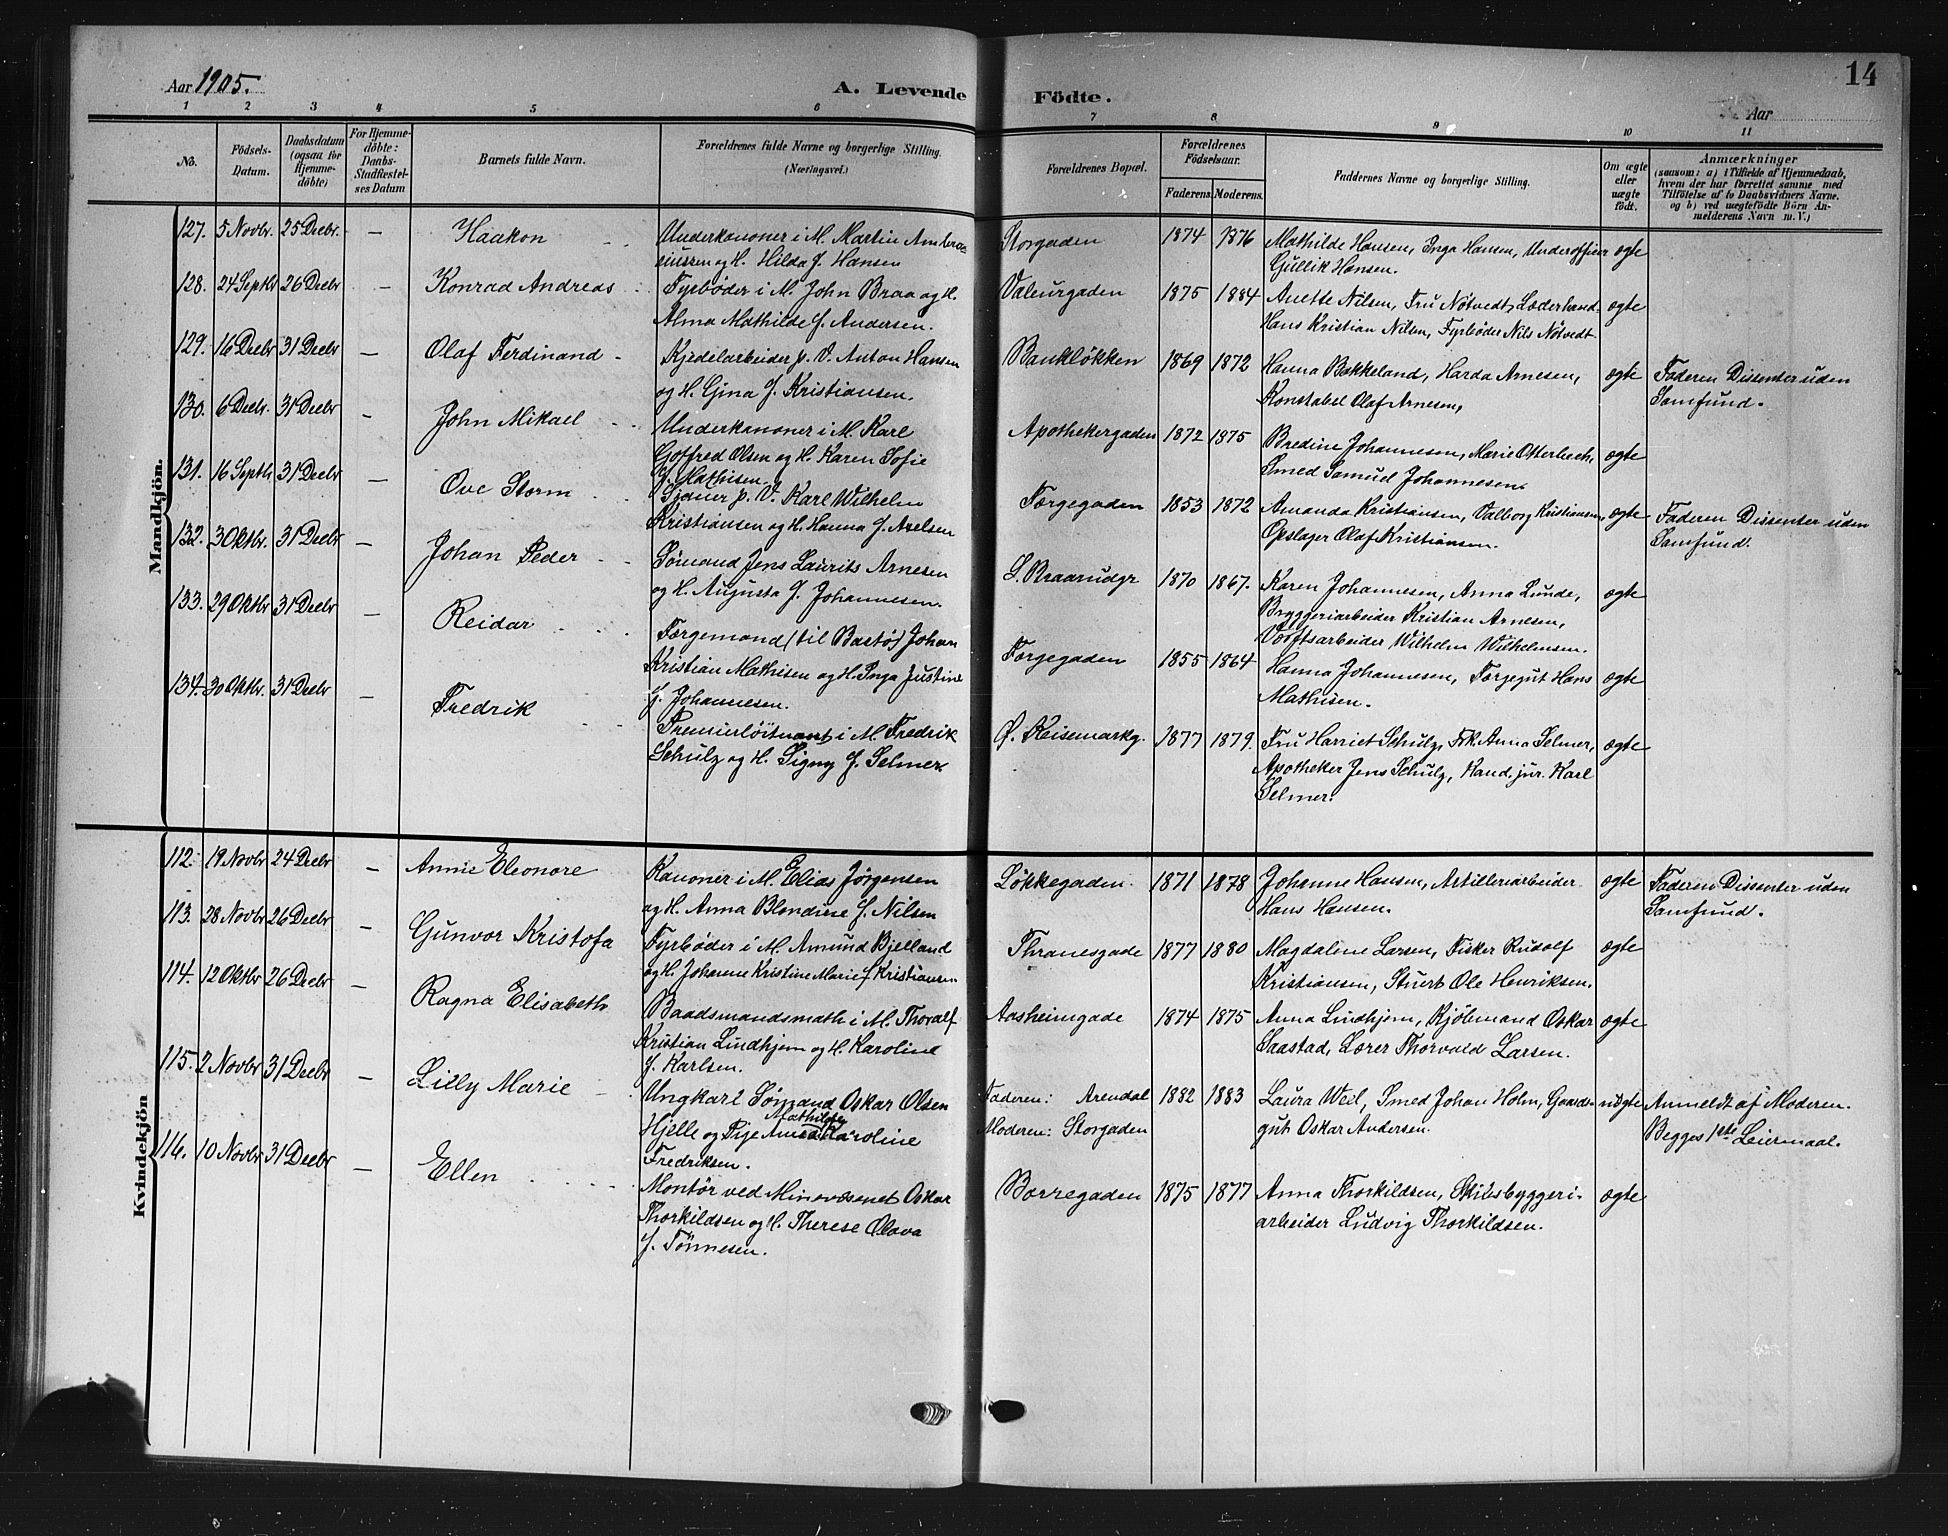 Aar 1905.
A. Levende Födte.
14
Aar
1 2 3 4 5 6 7 8 9 10 11
No.
Födsels-Datum.
Daabsdatum (ogsaa for Hjemme-döbte)
For Hjemme-döbte: Daabs-Stadfæstel-ses Datum
Barnets fulde Navn.
Forældrenes fulde Navne og borgerlige Stilling. (Næringsvei.)
Forældrenes Bopæl.
Forældrenes Födselsaar.
Faderens. Moderens.
Faddernes Navne og borgerlige Stilling.
Om ægte eller uægte födt.
Anmærkninger
(saasom: a) i Tilfælde af Hjemmedaab,
hvem der har forrettet samme med
Tilföielse af to Daabsvidners Navne.
og b) ved uægtefödte Börn An-
melderens Navn m. V.)
Mandkjön.
127. 5 Novbr. 25 Decbr. – Haakon
Underkanoner i M. Martin Ambro-
siussen og H. Hilda f. Hansen
Storgaden 1874 1876
Mathilde Hansen, Inga Hansen, Underofficier
Gullik Hansen.
ægte
128. 24 Septbr 26 Decbr – Konrad Andreas
Fyrbøder i M. John Braa og H.
Alma Mathilde f. Andersen.
Valeurgaden 1875 1884
Anette Nilsen, Fru Nötvedt, Læderhand.
Hans Kristian Nilsen, Fyrbøder Nils Nötvedt.
ægte
129. 16 Decbr 31 Decbr – Olaf Ferdinand
Kjedelarbeider p. V. Anton Hansen
og H. Gina f. Kristiansen.
Bankløkken 1869 1872
Hanna Bakkeland, Harda Arnesen,
Konstabel Olaf Arnesen,
ægte
Faderen Dissenter uden
Samfund.
130. 6 Decbr. 31 Decbr – John Mikael
Underkanoner i M. Karl
Gotfred Olsen og H. Karen Sofie
f. Mathisen.
Apothekergaden 1872 1875
Bredine Johannesen, Marie Otterbech,
Smed Samuel Johannesen.
ægte
131. 16 Septbr 31 Decbr – Ove Storm
p. V. Karl Wilhelm
Kristiansen og H. Hanna f. Axelsen
Færgegaden 1853 1872
Amanda Kristiansen, Valborg Kristiansen,
Opslager Olaf Kristiansen.
ægte
Faderen Dissenter uden
Samfund.
132. 30 Oktbr. 31 Decbr – Johan Peder
Sømand Jens Laurits Arnesen
og H. Augusta f. Johannesen.
L. Braarudgr 1870 1867.
Karen Johannesen, Anna Lunde,
Bryggeriarbeider Kristian Arnesen,
Værftsarbeider Wilhelm Wilhelmsen.
ægte
133. 29 Oktbr 31 Decbr – Reidar
Færgemand (til Bastø) Johan
Kristian Mathisen og H. Inga Justine
f. Johannesen.
Færgegaden 1855 1864
Hanna Johannesen, Færgegut Hans
Mathisen.
ægte
134. 30 Oktbr. 31 Decbr – Fredrik
Premierlöitnant i M. Fredrik
Schulz og H. Signy f. Selmer
Ø. Keisemarkg. 1877 1879.
Fru Harriet Schulz, Frk. Anna Selmer,
Apotheker Jens Schulz, Kand. jur. Karl
Selmer.
ægte
Kvindekjön
112. 19 Novbr 24 Decbr – Annie Eleonore
Kanoner i M. Elias Jørgensen
og H. Anna Blondine f. Nilsen
Løkkegaden. 1871 1878
Johanne Hansen, Artilleriarbeider
Hans Hansen.
ægte
Faderen Dissenter uden
Samfund.
113. 28 Novbr 26 Decbr – Gunvor Kristofa
Fyrbøder i M. Amund Bjelland
og H. Johanne Kristine Marie f. Kristiansen
Thranesgade 1877 1880
Magdaline Larsen, Fisker Rudolf
Kristiansen, Stuert Ole Henriksen.
ægte
114. 12 Oktbr 26 Decbr – Ragna Elisabeth
Baadsmandsmath i M. Thoralf
Kristian Lindhjem og H. Karoline
f. Karlsen.
Aasheimgade 1874 1875
Anna Lindhjem, Kjöbmand Oskar
Saastad, Lærer Thorvald Larsen.
ægte
115. 2 Novbr 31 Decbr – Lilly Marie
Ungkarl Sømand Oskar Olsen
Hjelle og Pige Anna Mathilde Karoline
Fredriksen.
Faderen: Arendal
Moderen: Storgaden
1882 1883
Laura Weil, Smed Johan Holm, Gaards-
gut Oskar Andersen.
uægte
Anmeldt af Moderen.
Begges 1ste Leiermaal.
116. 10 Novbr 31 Decbr – Ellen
Montör ved Minevæsenet Oskar
Thorkildsen og H. Therese Olava
f. Tönnesen.
Borregaden 1875 1877
Anna Thorkildsen, Skibsbyggeri-
arbeider Ludvig Thorkildsen.
ægte